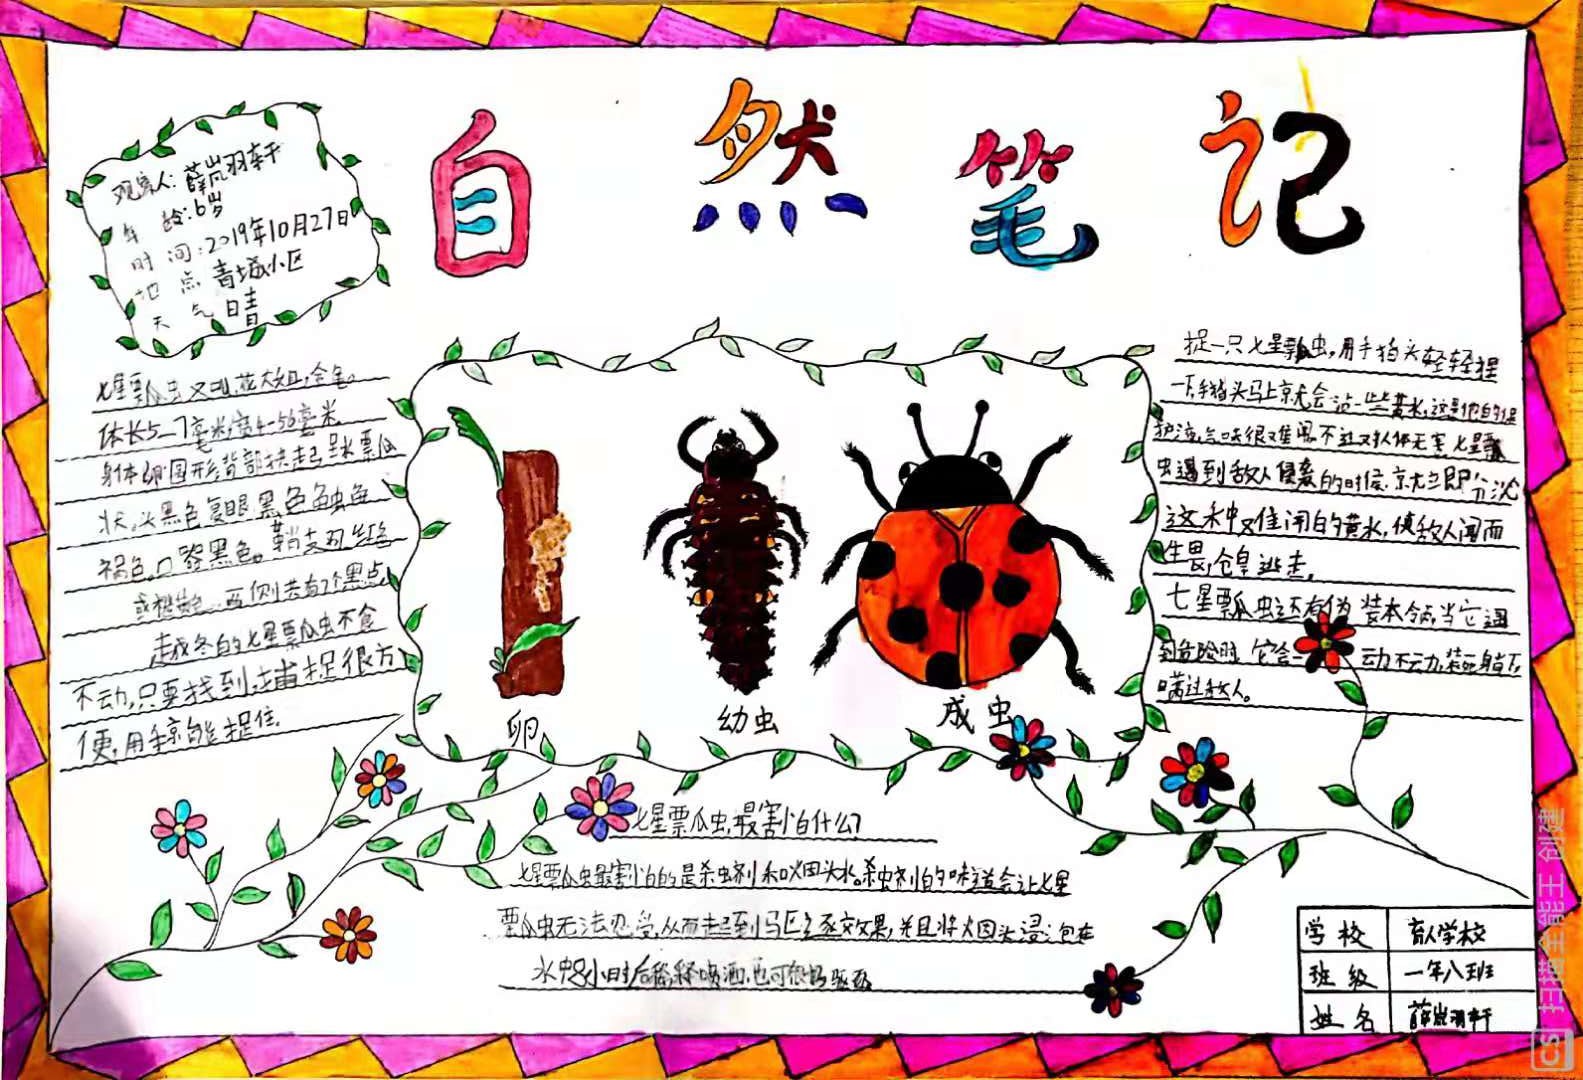 自然笔记
观察人:薛岚羽轩
年 龄:6岁
时 间:2019年10月27日
地 点 青城小区
天 气 晴
七星瓢虫又叫花大姐,全龟。
体长5—7毫米,宽4-56毫米
身体卵圆形,背部拱起 呈水瓢瓜
状,头黑色复眼黑色 触角
褐色。口器黑色。鞘支 红色
或橙黄色 两侧共有7个黑点,
越冬的七星瓢虫不食
不动,只要找到,捕捉很方
便,用手就能捉住.
卵
幼虫
成虫
捉一只七星瓢虫,用手指头轻轻捏
一下,手指头马上就会沾一些黄水,这是他的保
护液,气味很难闻,不过对人体无害 七星瓢
虫遇到敌人侵袭的时候,就立即分泌
这种难闻的黄水,使敌人闻而
生畏,仓皇逃走,
七星瓢虫还有伪装本领,当它遇
到危险时 它会一 动不动,装死躺下,
瞒过敌人。
七星瓢虫最害怕什么?
七星瓢虫最害怕的是杀虫剂和烟头水。杀虫剂的味道会让七星
瓢虫无法忍受,从而起到驱逐效果,并且将烟头浸泡在
水中 小时后稀释喷洒,也可很好驱
学校 育人学校
班级 一年八班
姓名 薛岚羽轩
CS 扫描全能王 创建